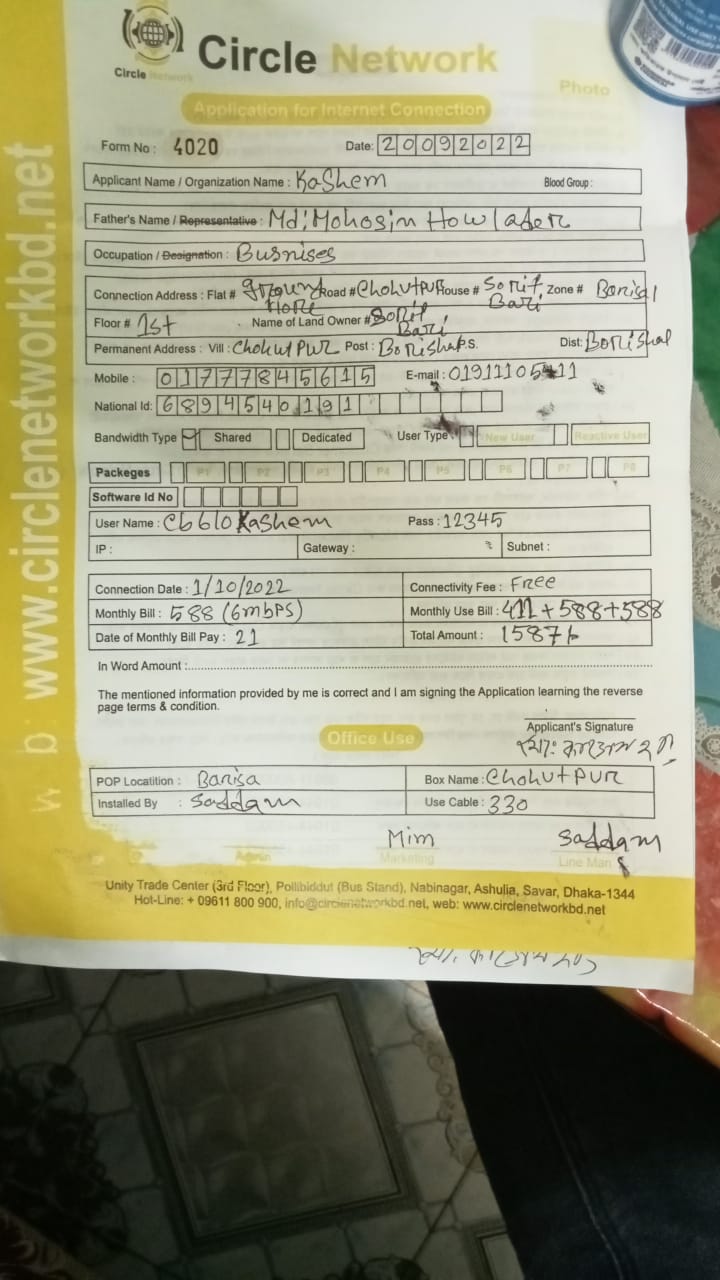 Circle Network
Circle Network
Photo
Application for Internet Connection
Form No : 4020 Date: 20092022
Applicant Name / Organization Name : Kashem Blood Group :
Father's Name / Representative : Md: Mohosin Howlader
Occupation / Designation : Busnises
Connection Address : Flat # ground Road # Chohutpur House # Sorif Bari Zone # Borisal
Floor # 1st Name of Land Owner # Sorif Bari
Permanent Address : Vill : Chohutpur Post : Borishal P.S. Dist: Borishal
Mobile : 01777845615 E-mail : 01911105 11
National Id: 6894540191
Bandwidth Type Shared Dedicated User Type New User Reactive User
Packeges P1 P2 P3 P4 P5 P6 P7 P8
Software Id No
User Name : Cb610Kashem Pass : 12345
IP : Gateway : Subnet :
Connection Date : 1/10/2022 Connectivity Fee : Free
Monthly Bill : 588 (6mbps) Monthly Use Bill : 411+588+588
Date of Monthly Bill Pay : 21 Total Amount : 1587/-
In Word Amount :
The mentioned information provided by me is correct and I am signing the Application learning the reverse
page terms & condition.
Applicant's Signature
Office Use
POP Locatition : Barisa Box Name : Chohutpur
Installed By : Saddam Use Cable : 330
Mim Saddam
Admin Marketing Line Man
Unity Trade Center (3rd Floor), Pollibiddut (Bus Stand), Nabinagar, Ashulia, Savar, Dhaka-1344
Hot-Line: + 09611 800 900, info@circlenetworkbd.net, web: www.circlenetworkbd.net
www.circlenetworkbd.net